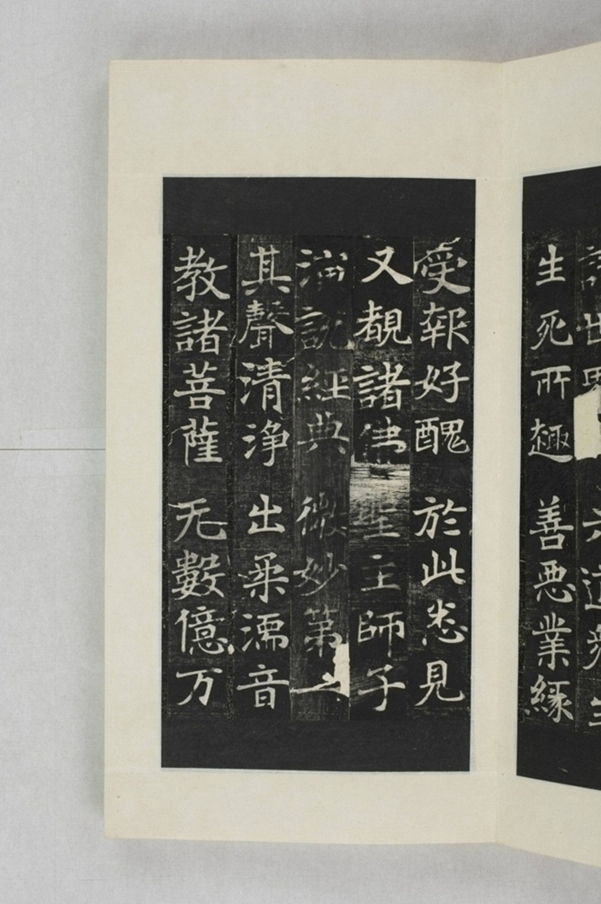 世界
六道衆生
生死所趣　善悪業縁
受報好醜　於此悉見
又覩諸佛　聖主師子
演說經典　微妙第一
其聲清淨　出柔濡音
教諸菩薩　无數億万